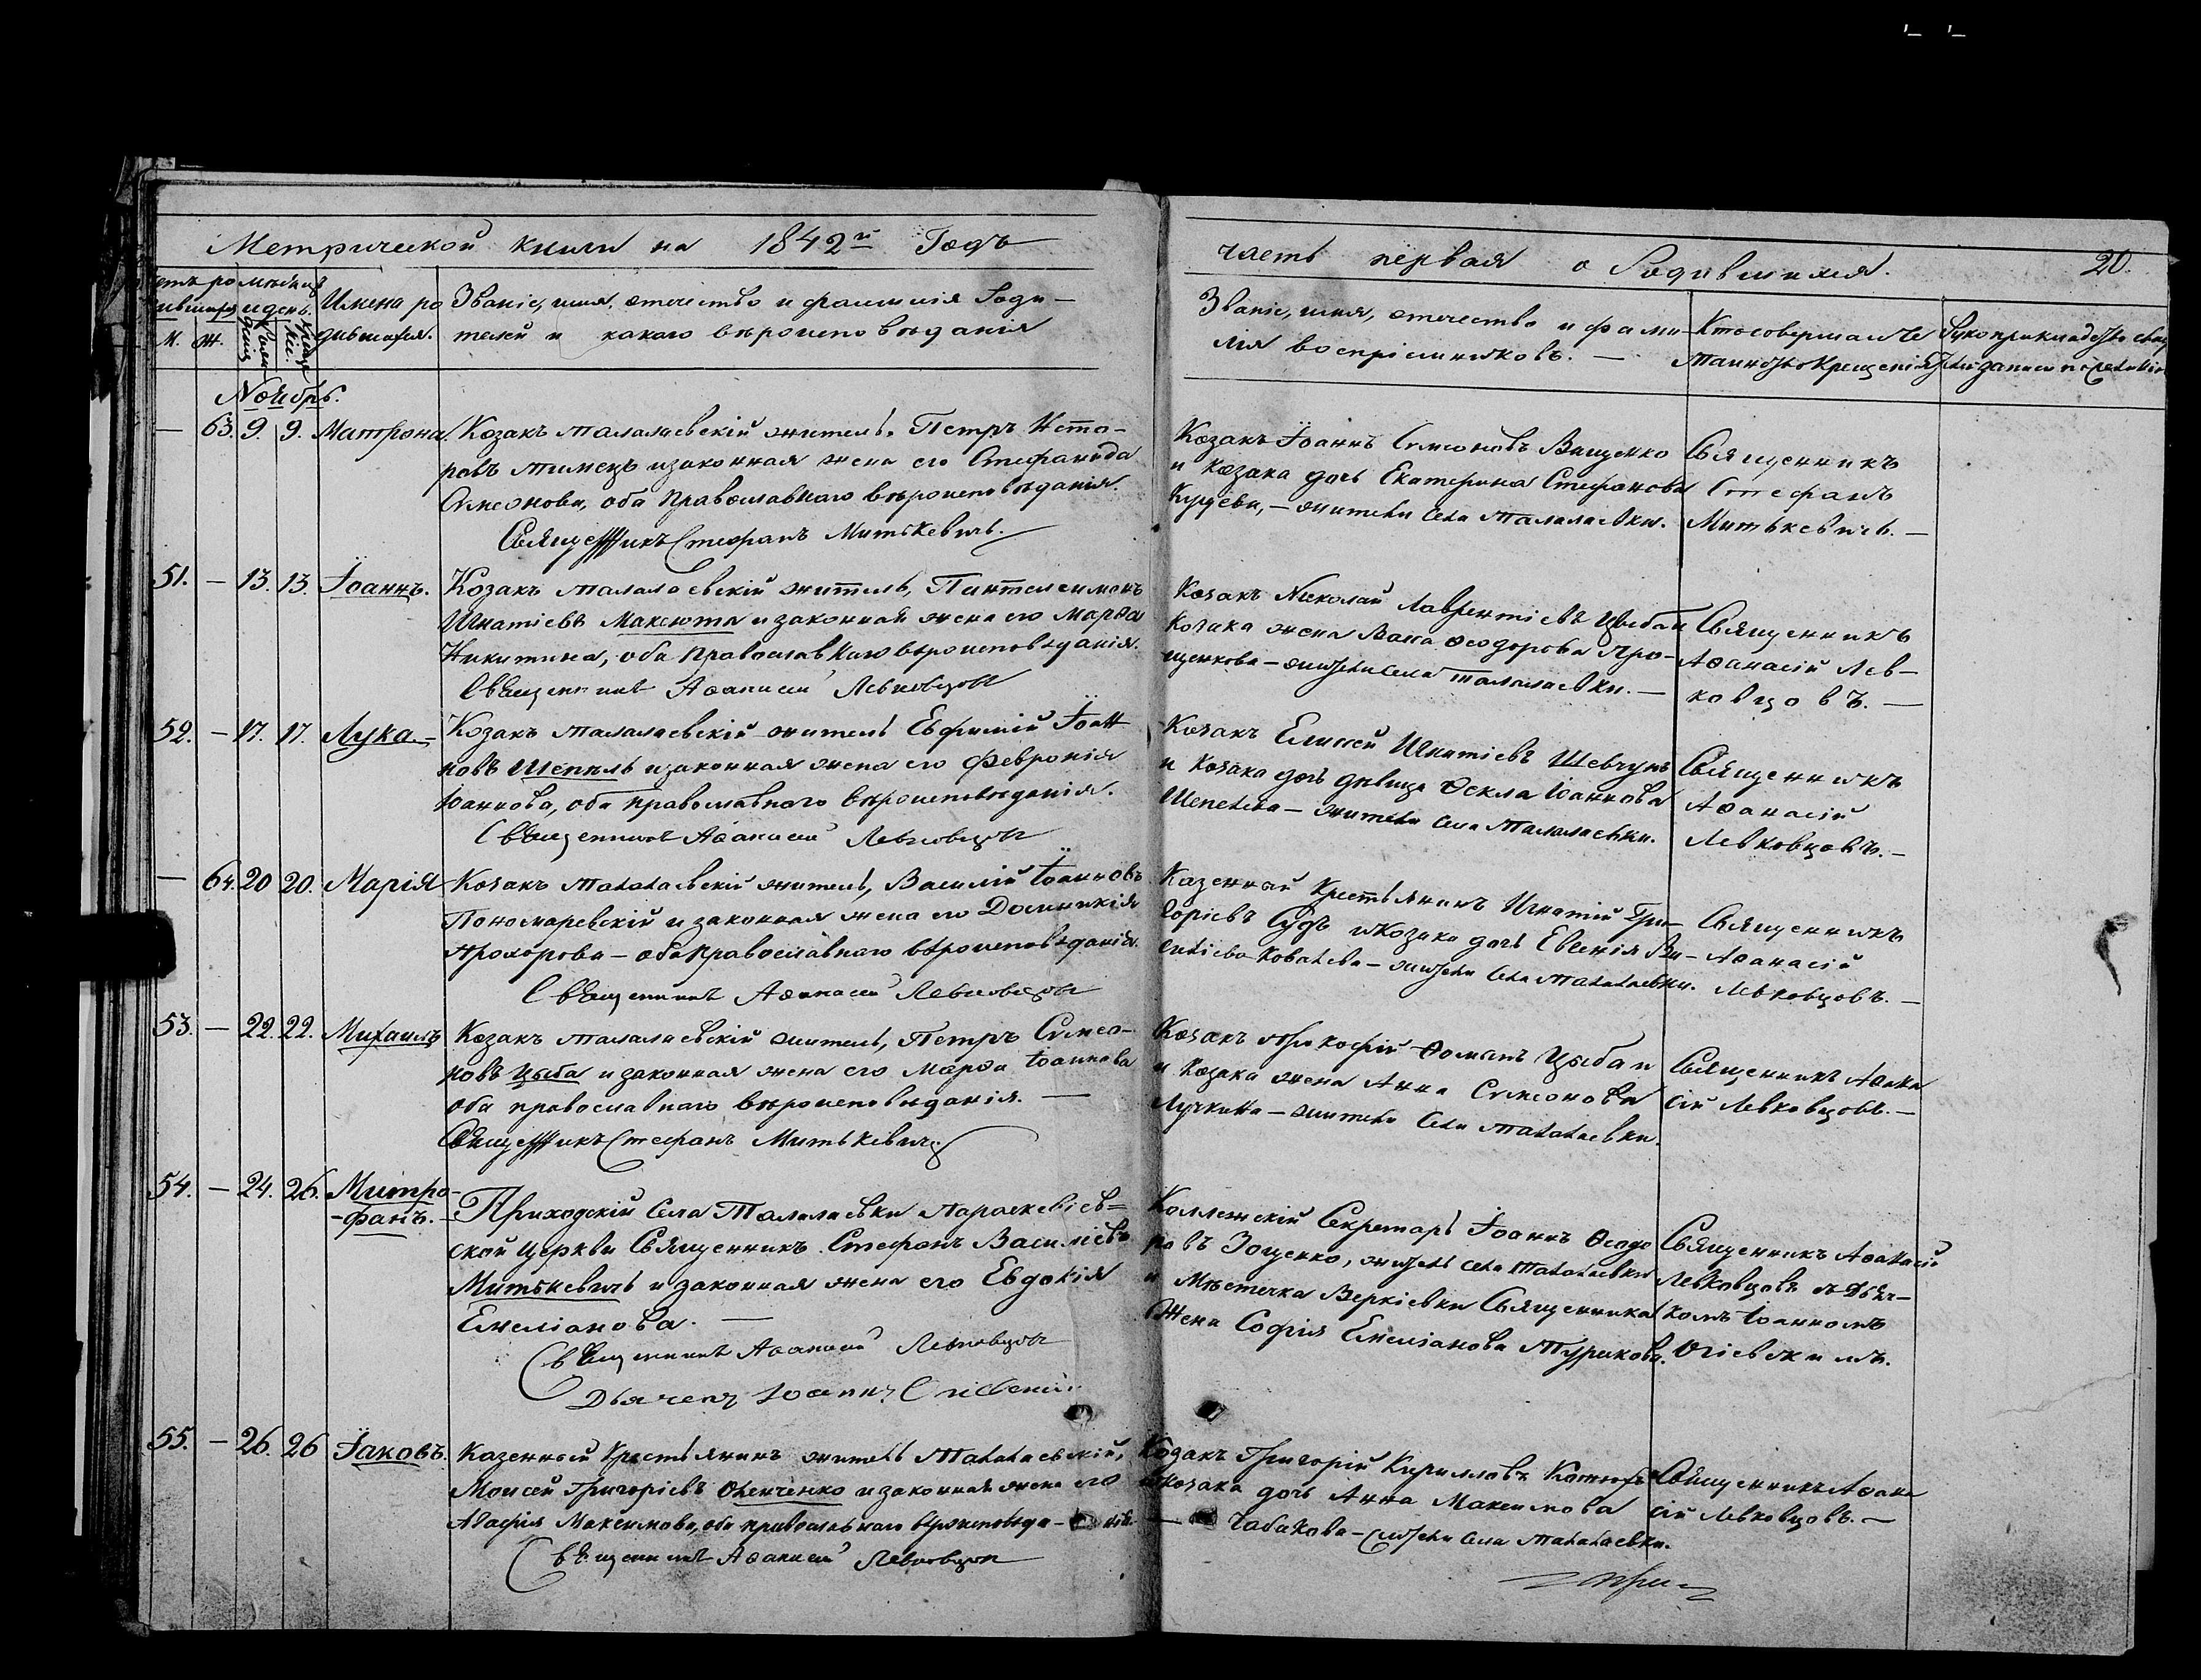 Метрической книги на 1842й Годъ
часть первая о Родившихся.
20.
М. Ж.
Имена ро
дившихся.
Званіе, имя, отчество и фамилія Роди-
телей и какого вѣроисповѣданія
Званіе, имя, отчество и фами-
лія воспріемниковъ. —
Кто совершалъ
таинство Крещенія
Рукоприкладство
Ноябрь.
— 63. 9. 9. Матрона
Козакъ талалаевскій житель. Петръ
и законная жена его Стефанида
Сумеонова, оба православнаго вѣроисповѣданія.
Священникъ Стефанъ Митькевичь.
Козакъ Іоаннъ Сумеоновъ Ващенко
и козака дочь Екатерина Стефанова
— жители села Талалаевки.
Священникъ
Стефанъ
Митькевичь. —
51. — 13. 13. Іоаннъ.
Козакъ талалаевскій житель, Пантелеимонъ
Игнатіевъ Максюта и законная жена его Марѳа
Никитина, оба православнаго вѣроисповѣданія.
Священникъ Аѳанасій Левковцовъ
Козакъ Николай Лаврентіевъ
козака жена Ѳеодорова
щенкова — жители села талалаевки. —
Священникъ
Аѳанасій Лев-
ковцовъ. —
52. — 17. 17. Лука. —
Козакъ талалаевскій житель Евфимій Іоан-
новъ Шепель и законная жена его Февронія
Іоаннова, оба православнаго вѣроисповѣданія.
Священникъ Аѳанасій Левковцовъ
Козакъ Елисей Игнатіевъ Шевчунъ
и козака дочь дѣвица Ѳекла Іоаннова
Шепелева — жители села Талалаевки.
Священникъ
Аѳанасій
Левковцовъ. —
— 64. 20 20. Марія
Козакъ талалаевскій житель, Василій Іоанновъ
Пономаревскій и законная жена его Домникія
Прохорова — оба православнаго вѣроисповѣданія.
Священникъ Аѳанасій Левковцовъ
Казенный крестьянинъ Игнатій Гри-
горіевъ и козака дочь Евгенія Ва-
силіева Ковалева — жители села талалаевки.
Священникъ
Аѳанасій
Левковцовъ. —
53. — 22. 22. Михаилъ
Козакъ талалаевскій житель, Петръ Сумео-
новъ Цыба и законная жена его Марѳа Іоаннова
оба православнаго вѣроисповѣданія. —
Священникъ Стефанъ Митькевичь
Козакъ Прокофій Ѳоминъ
и козака жена Анна Сумеонова
— жители села талалаевки.
Священникъ Аѳана
сій Левковцовъ. —
54. — 24. 26. Митро-
-фанъ. —
Приходскій села Талалаевки Параскевіев=
ской церкви Священникъ Стефанъ Василіевъ
Митькевичь и законная жена его Евдокія
Емеліанова. —
Священникъ Аѳанасій Левковцовъ
Дьячекъ Іоаннъ
Коллежскій Секретарь Іоаннъ Ѳеодо
ровъ Зощенко, житель села талалаевки
и мѣстечка Веркіевки Священника
жена Софія Емеліанова Турикова.
Священникъ Аѳанасій
Левковцовъ съ дьяч-
комъ Іоанномъ
Огіевскимъ.
55. — 26. 26 Іаковъ.
Казенный крестьянинъ житель Талалаевскій,
Моисей Григоріевъ Оленченко и законная жена его
Агафія Максимова, оба православнаго вѣроисповѣда-
Священникъ Аѳанасій Левковцовъ
Козакъ Григорій Кирилловъ
и козака дочь Анна Максимова
— Чабакова — жители села талалаевки.
Священникъ Аѳана
сій Левковцовъ. —